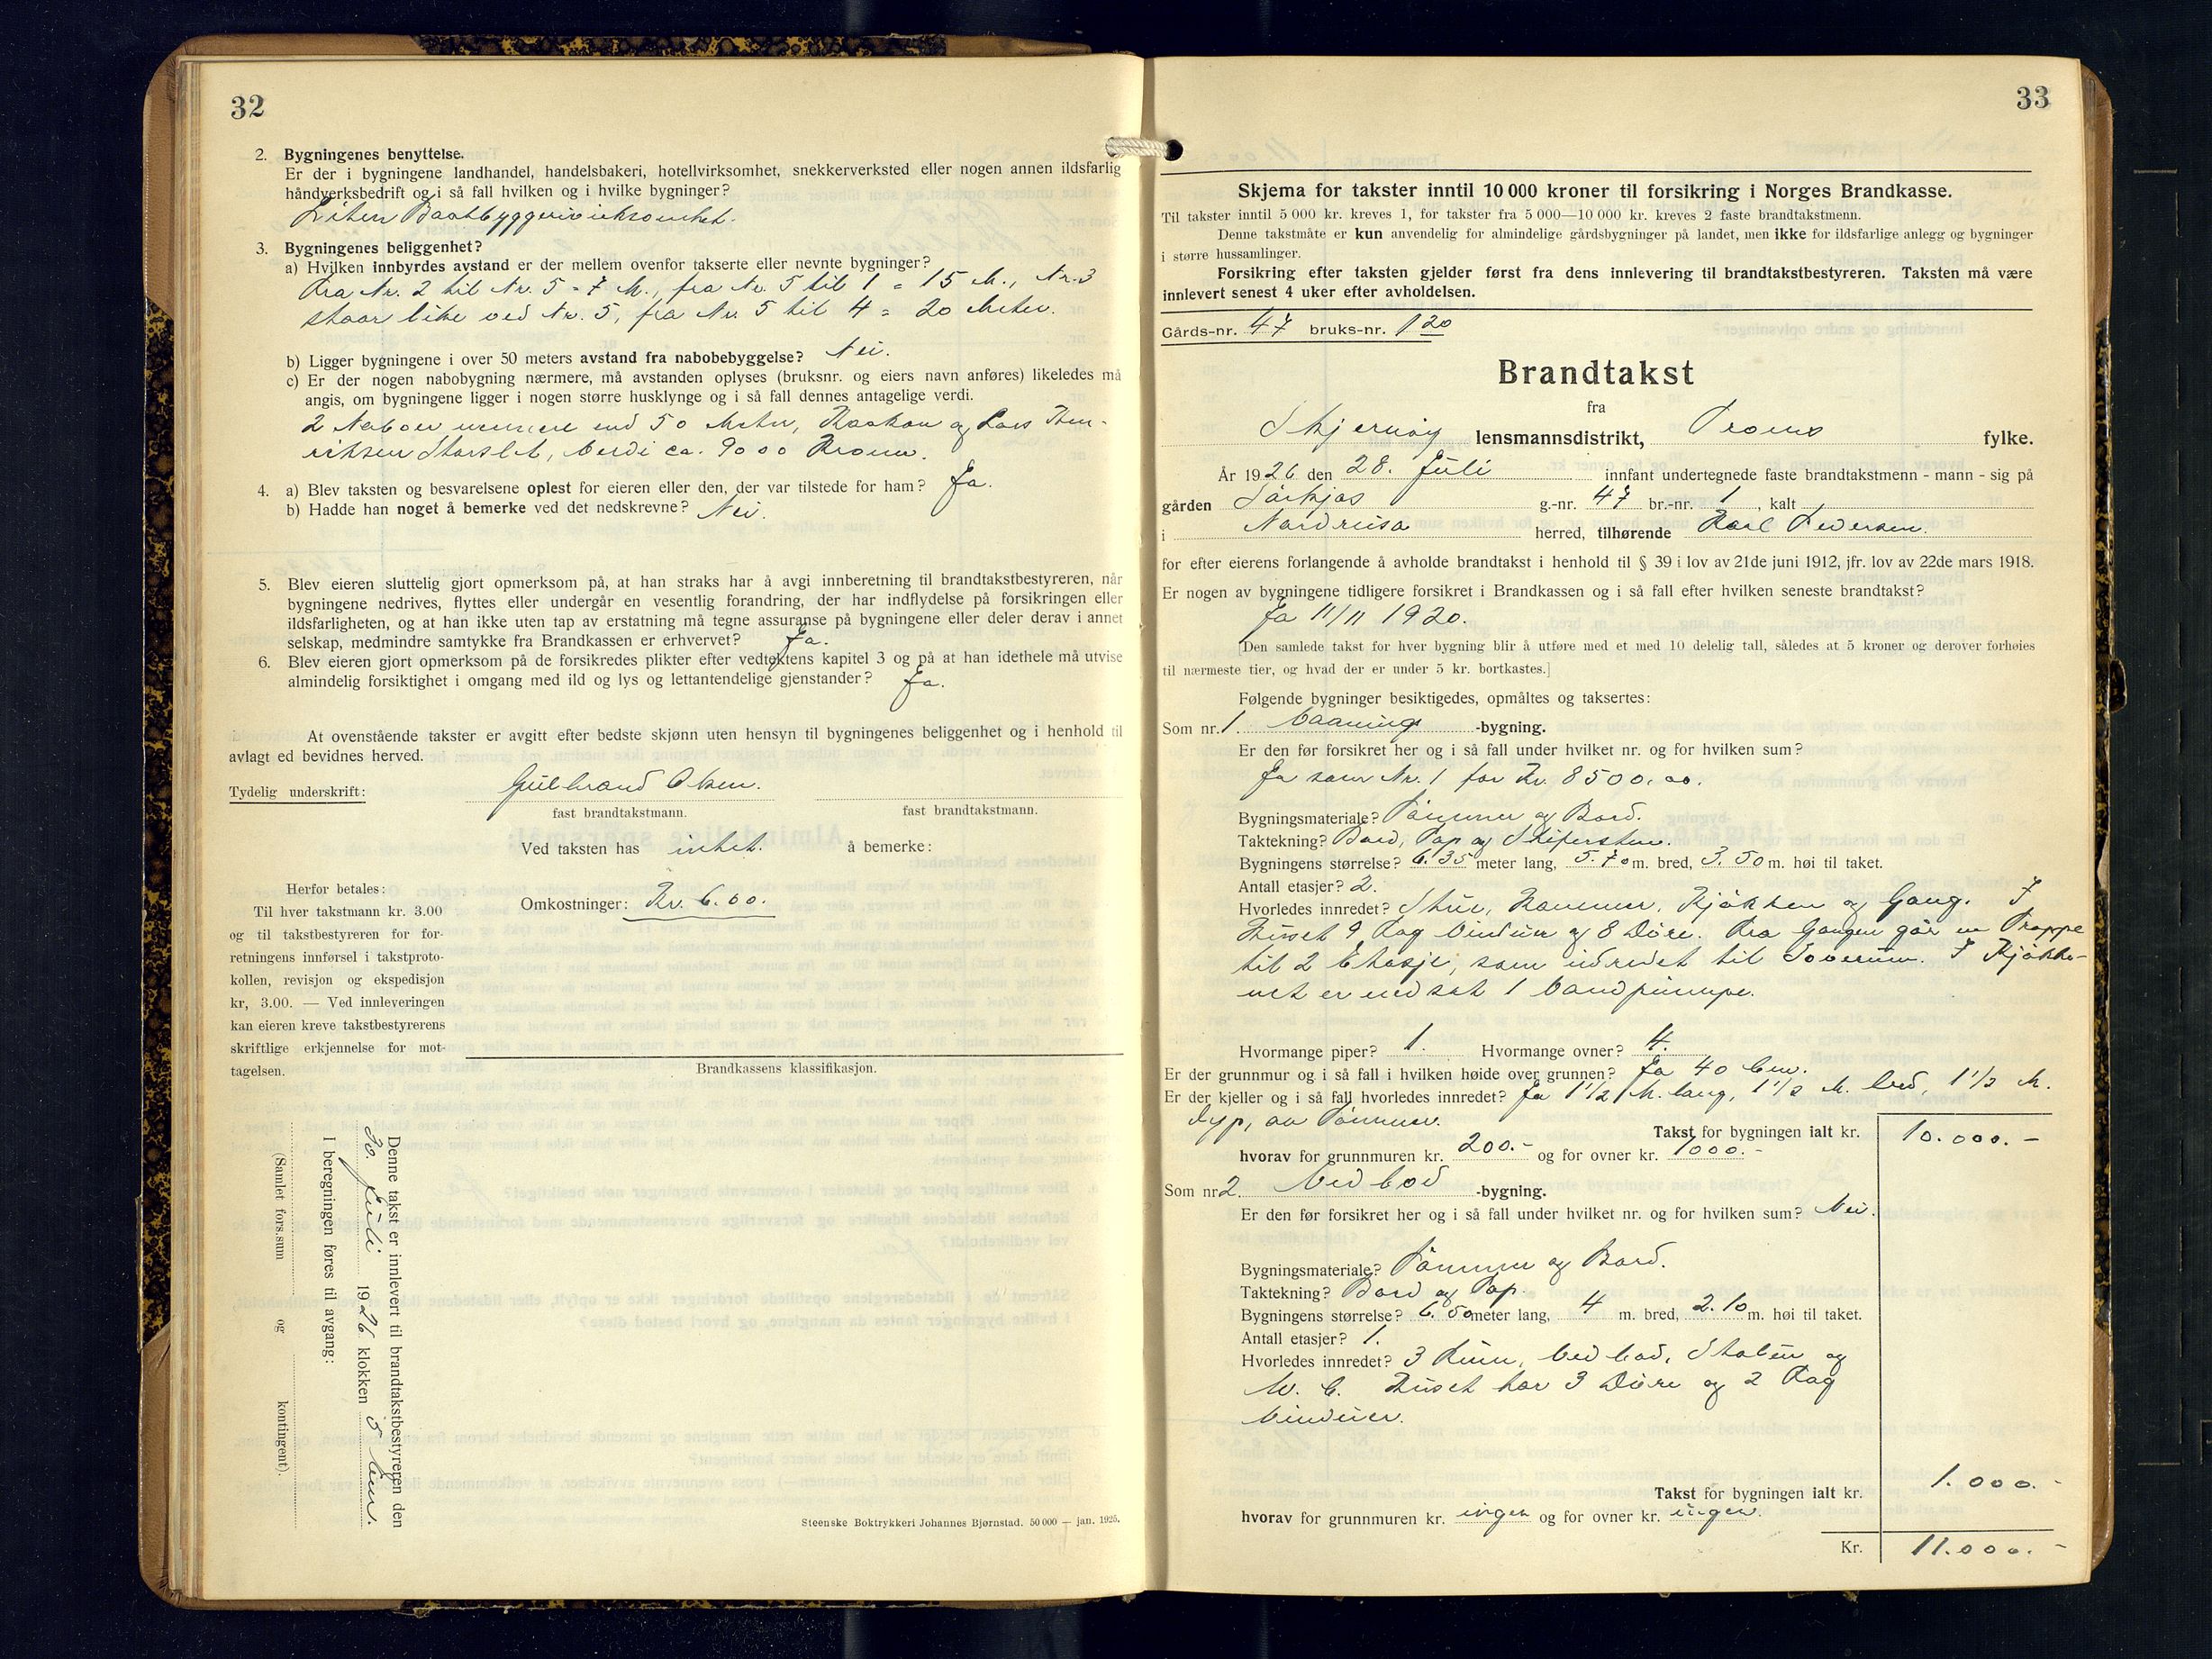 32
2. Bygningenes benyttelse.
Er der i bygningene landhandel, handelsbakeri, hotellvirksomhet, snekkerverksted eller nogen annen ildsfarlig
håndverksbedrift og i så fall hvilken og i hvilke bygninger?
Liten Baatbyggerivirksomhet.
3. Bygningenes beliggenhet?
a) Hvilken innbyrdes avstand er der mellem ovenfor takserte eller nevnte bygninger?
Fra Nr. 2 til Nr. 5 = 7 M., fra Nr. 5 til 1 = 15 M., Nr. 3
staar like ved Nr. 5, fra Nr. 5 til 4 = 20 Meter.
b) Ligger bygningene i over 50 meters avstand fra nabobebyggelse? Nei.
c) Er der nogen nabobygning nærmere, må avstanden oplyses (bruksnr. og eiers navn anføres) likeledes må
angis, om bygningene ligger i nogen større husklynge og i så fall dennes antagelige verdi.
2 Naboer nærmere end 50 Meter, Haakon og Lars Hen-
riksen Storslet, verdi ca. 9000 Kroner.
4. a) Blev taksten og besvarelsene oplest for eieren eller den, der var tilstede for ham? Ja.
b) Hadde han noget å bemerke ved det nedskrevne? Nei.
5. Blev eieren sluttelig gjort opmerksom på, at han straks har å avgi innberetning til brandtakstbestyreren, når
bygningene nedrives, flyttes eller undergår en vesentlig forandring, der har indflydelse på forsikringen eller
ildsfarligheten, og at han ikke uten tap av erstatning må tegne assuranse på bygningene eller deler derav i annet
selskap, medmindre samtykke fra Brandkassen er erhvervet? Ja.
6. Blev eieren gjort opmerksom på de forsikredes plikter efter vedtektens kapitel 3 og på at han idethele må utvise
almindelig forsiktighet i omgang med ild og lys og lettantendelige gjenstander? Ja.
At ovenstående takster er avgitt efter bedste skjønn uten hensyn til bygningenes beliggenhet og i henhold til
avlagt ed bevidnes herved.
Tydelig underskrift: Gulbrand Olsen.
fast brandtakstmann. fast brandtakstmann.
Ved taksten has intet. å bemerke:
Omkostninger: Kr. 6.00.
Herfor betales:
Til hver takstmann kr. 3.00
og til takstbestyreren for for-
retningens innførsel i takstproto-
kollen, revisjon og ekspedisjon
kr, 3.00. — Ved innleveringen
kan eieren kreve takstbestyrerens
skriftlige erkjennelse for mot-
tagelsen.
Brandkassens klassifikasjon.
Denne takst er innlevert til brandtakstbestyreren den
30. Juli 1926 klokken 5 em.
I beregningen føres til avgang:
(Samlet fors.sum og kontingent).
Steenske Boktrykkeri Johannes Bjørnstad. 50 000 — jan. 1925.
33
Skjema for takster inntil 10 000 kroner til forsikring i Norges Brandkasse.
Til takster inntil 5 000 kr. kreves 1, for takster fra 5 000—10 000 kr. kreves 2 faste brandtakstmenn.
Denne takstmåte er kun anvendelig for almindelige gårdsbygninger på landet, men ikke for ildsfarlige anlegg og bygninger
i større hussamlinger.
Forsikring efter taksten gjelder først fra dens innlevering til brandtakstbestyreren. Taksten må være
innlevert senest 4 uker efter avholdelsen.
Gårds-nr. 47 bruks-nr. 1 20
Brandtakst
fra
Skjervøy lensmannsdistrikt, Troms fylke.
År 1926 den 28. Juli innfant undertegnede faste brandtakstmenn - mann - sig på
gården Sørkjos g.-nr. 47 br.-nr. 1, kalt
i Nordreisa herred, tilhørende Karl Pedersen.
for efter eierens forlangende å avholde brandtakst i henhold til § 39 i lov av 21de juni 1912, jfr. lov av 22de mars 1918.
Er nogen av bygningene tidligere forsikret i Brandkassen og i så fall efter hvilken seneste brandtakst?
Ja 11/11 1920.
[Den samlede takst for hver bygning blir å utføre med et med 10 delelig tall, således at 5 kroner og derover forhøies
til nærmeste tier, og hvad der er under 5 kr. bortkastes.]
Følgende bygninger besiktigedes, opmåltes og taksertes:
Som nr. 1. Vaanings -bygning.
Er den før forsikret her og i så fall under hvilket nr. og for hvilken sum?
Ja som Nr. 1 for Kr. 8500.00.
Bygningsmateriale? Tømmer og Bord.
Taktekning? Bord, Pap og Skifersten.
Bygningens størrelse? 6.35 meter lang, 5.70 m. bred, 3.50 m. høi til taket.
Antall etasjer? 2.
Hvorledes innredet? Stue, Kammer, Kjøkken og Gang. I
Huset 9 Fag Vinduer og 8 Døre. Fra Gangen går en Trappe
til 2 Etasje, som indredet til Soverum. I Kjøkke-
net er nedsat 1 Vandpumpe.
Hvormange piper? 1. Hvormange ovner? 4.
Er der grunnmur og i så fall i hvilken høide over grunnen? Ja 40 Cm.
Er der kjeller og i så fall hvorledes innredet? Ja 1 1/2 M. lang, 1 1/2 M. bred, 1 1/2 M.
dyp, av Tømmer.
Takst for bygningen ialt kr. 10.000.-
hvorav for grunnmuren kr. 200.- og for ovner kr. 1000.-
Som nr 2. Vedbod -bygning.
Er den før forsikret her og i så fall under hvilket nr. og for hvilken sum? Nei.
Bygningsmateriale? Tømmer og Bord.
Taktekning? Bord og Pap.
Bygningens størrelse? 6.50 meter lang, 4 m. bred, 2.10 m. høi til taket.
Antall etasjer? 1.
Hvorledes innredet? 3 Rum, Vedbod, Stabur og
W. C. Huset har 3 Døre og 2 Fag
Vinduer.
Takst for bygningen ialt kr. 1.000.-
hvorav for grunnmuren kr. ingen og for ovner kr. ingen.
Kr. 11.000.-